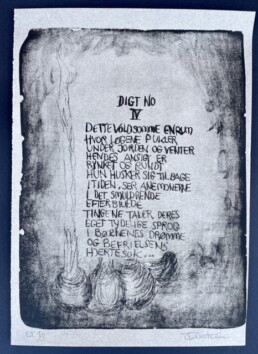 DIGT NO
IV
DETTE VOLDSOMME ENRUM
HVOR LØGENE PULSER
UNDER JORDEN OG VENTER
HENDES ANSIGT ER
RYNKET OG RUNDT
HUN HUSKER SIG TILBAGE
I TIDEN, SER ANEMONERNE
I DET SMULDRENDE
EFTERBILLEDE
TINGENE TALER DERES
EGET TYDELIGE SPROG
I BØRNENES DRØMME
OG BEFRIELSENS
HJERTESUK...